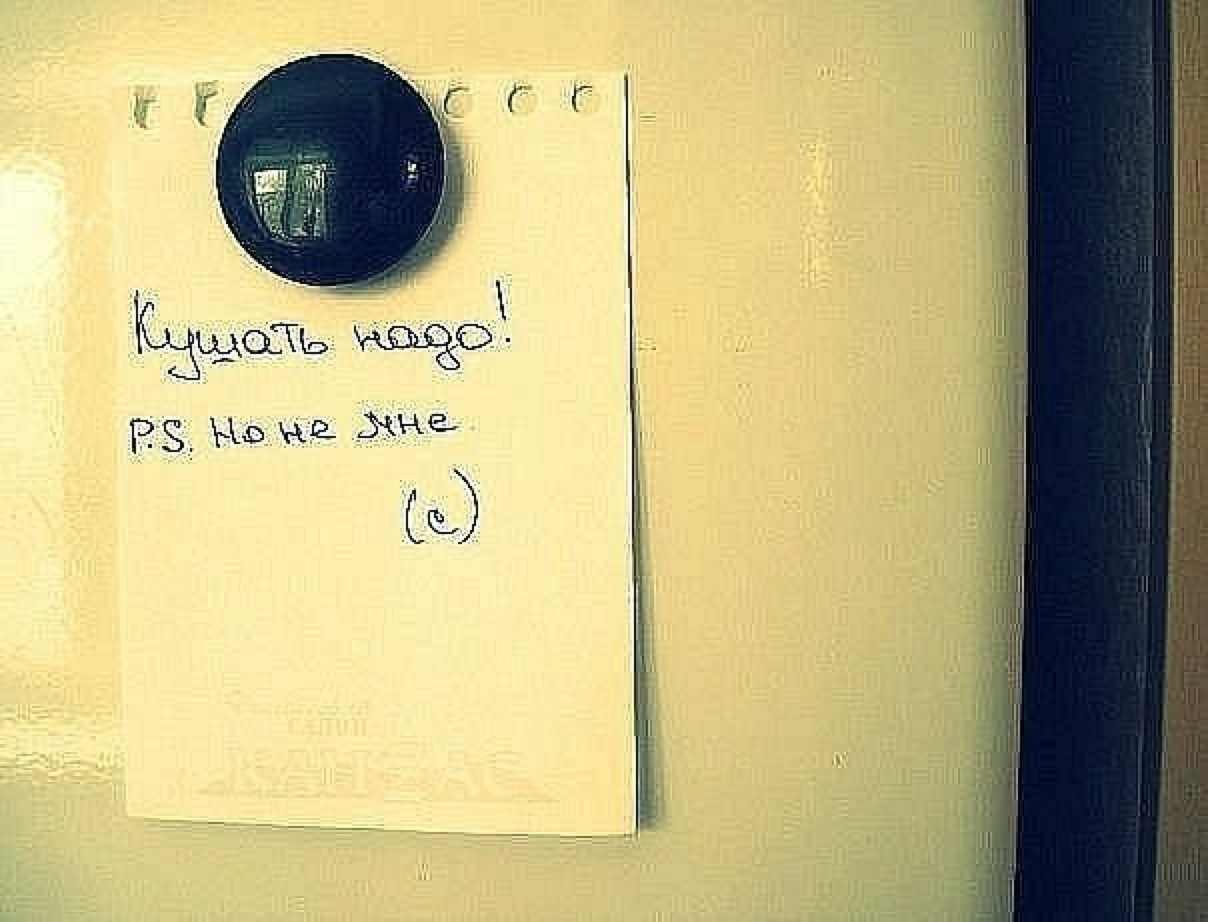 Кушать надо!
P.S. Но не мне.
(с)